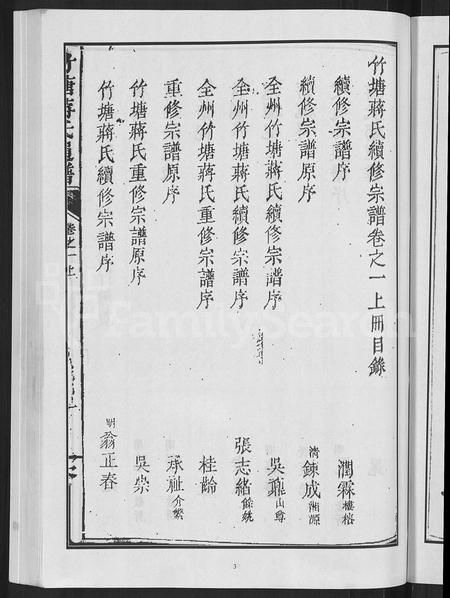 竹塘蔣氏續修宗譜卷之一上冊目錄
續修宗譜序 潤霖
續修宗譜原序 清 鍊成 湘源
全州竹塘蔣氏續修宗譜序 吳 山尊
全州竹塘蔣氏續修宗譜序 張志緒
全州竹塘蔣氏重修宗譜序 桂齡
重修宗譜原序 承祉 介繁
竹塘蔣氏重修宗譜原序 吳崇
竹塘蔣氏續修宗譜序 明 翁正春
竹塘蔣氏通譜 卷之一上
3
FamilySearch